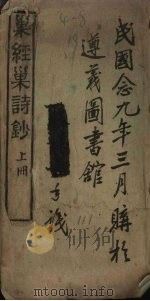 民國念九年三月購於
遵義圖書館
手識
巢經巢詩鈔 上冊
www.mtoou.info